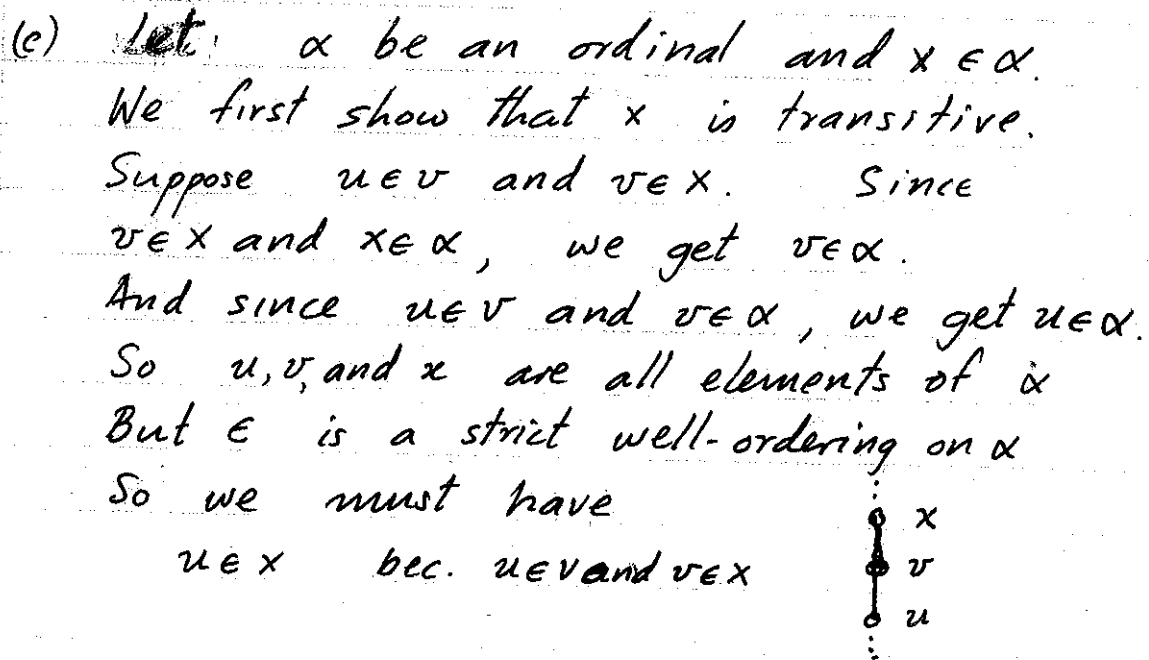 (e) Let α be an ordinal and x ∈ α.
We first show that x is transitive.
Suppose u ∈ v and v ∈ x. Since
v ∈ x and x ∈ α, we get v ∈ α.
And since u ∈ v and v ∈ α, we get u ∈ α.
So u, v, and x are all elements of α
But ∈ is a strict well-ordering on α
So we must have
x
u ∈ x bec. u ∈ v and v ∈ x
v
u